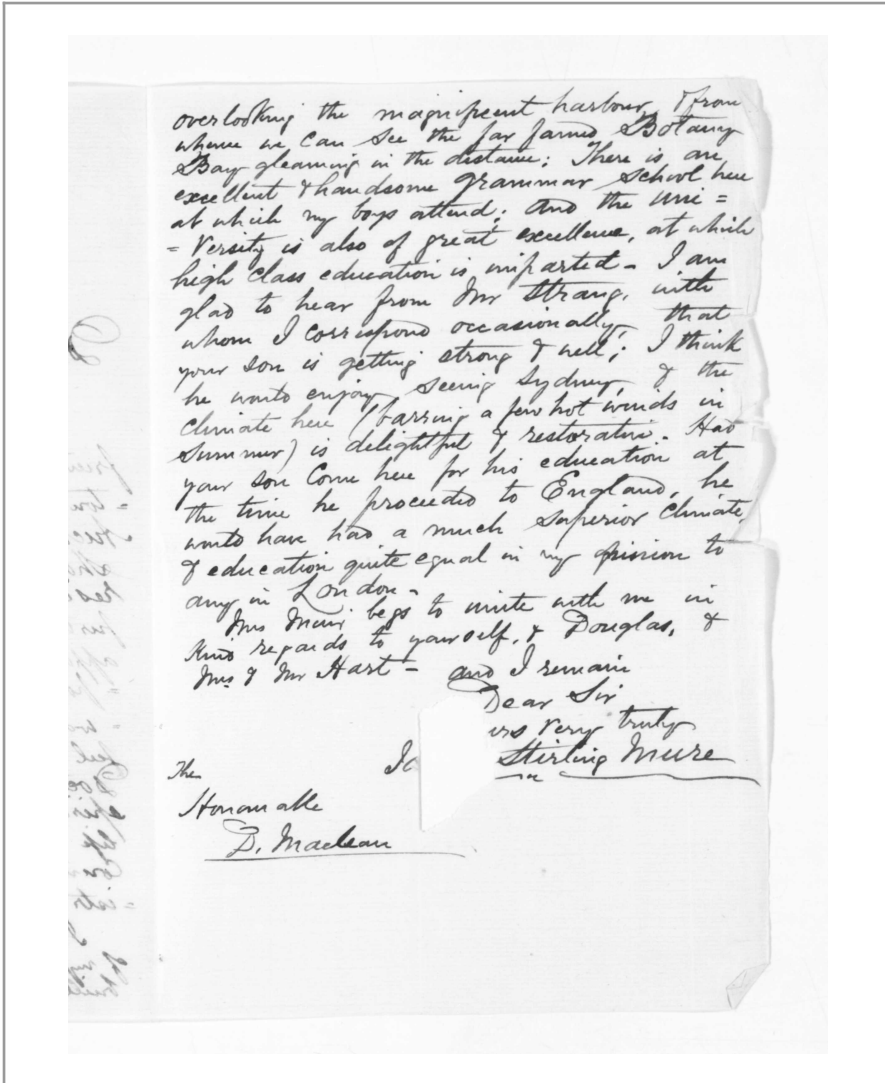 overlooking the magnificent harbour, & from
whence we can see the far famed Botany
Bay gleaming in the distance; There is an
excellent & handsome grammar school here
at which my boys attend; and the uni =
= versity is also of great excellence, at which
high class education is imparted - I am
glad to hear from Mr Strang, with
whom I correspond occasionally, that
your son is getting strong & well; I think
he would enjoy seeing Sydney, & the
climate here (barring a few hot winds in
summer) is delightful & restorative. Had
your son come here for his education at
the time he proceeded to England, he
would have had a much superior climate,
& education quite equal in my opinion to
any in London -
Mrs Mure begs to unite with me in
kind regards to yourself, & Douglas, &
Mrs & Mr Hart - and I remain
Dear Sir
urs very truly
Stirling Mure
The
Honourable
D. Maclean